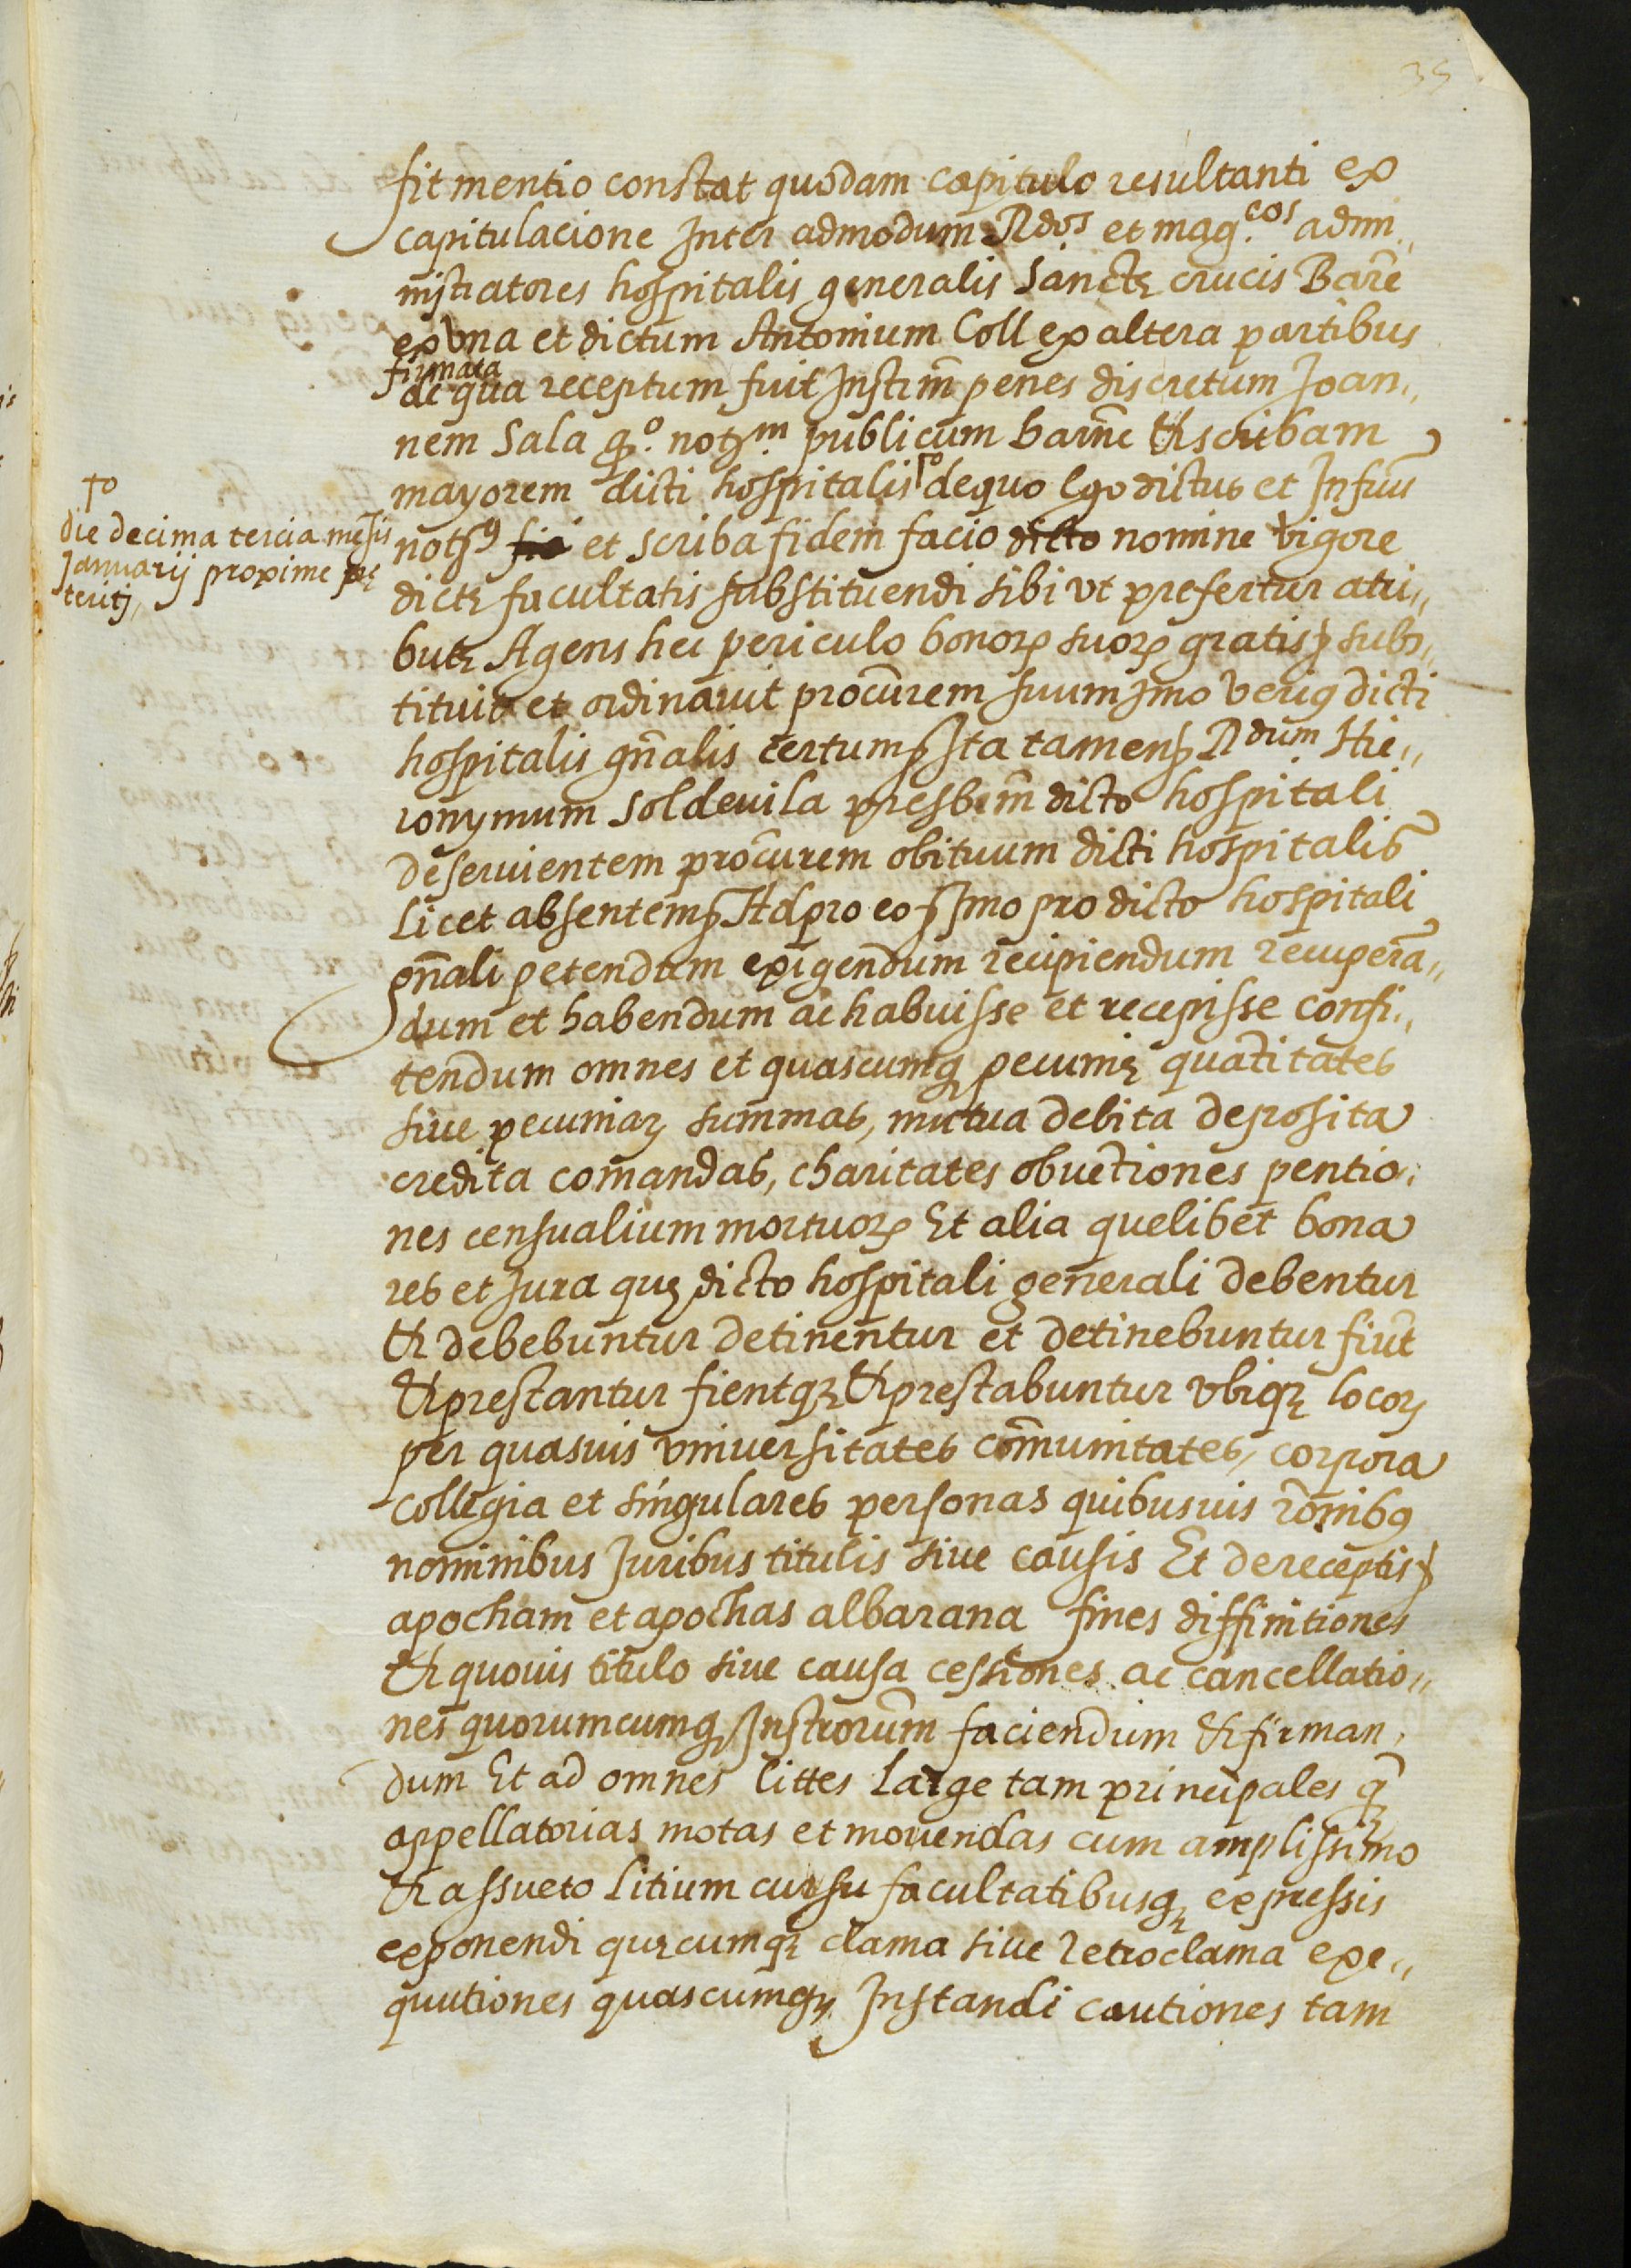 35
fit mentio constat quodam capitulo resultanti ex
capitulacione Inter admodum Rdos. et mag.cos admi„
nistratores hospitalis generalis Sanctę crucis Barcẽ
ex Vna et dictum Antonium Coll ex altera partibus
firmata
de qua receptum fuit Instrm̃ penes discretum Joan„
nem Sala q̃.º notʒ.m publicum barcñe et scribam
mayorem dicti hospitalis ꝉo de quo Ego dictus et Infrũs
ꝉo
die decima tercia mẽsis
Januarij proxime pę
teritj,
notʒ9 fio et scriba fidem facio dicto nomine vigore
dictę facultatis substituendi sibi vt prefertur atri„
butę Agens hec periculo bonoꝝ suoꝝ gratis ꝫ subs„
tituit et ordinavit procũrem suum Imo verig dicti
hospitalis gñalis certum ꝫ Ita tamen ꝫ Rdum. Hie„
ronymum Soldevila presbrm̃ dicto hospitali
deservientem procũrem obituum dicti hospitalis
Licet absentem ꝫ Ad pro eo ꝫ Imo pro dicto hospitali
gñali petendum exigendum recipiendum recuperã„
dum et habendum ac habuisse et recepisse confi„
tendum omnes et quascumqʒ pecunię quãtitates
sive pecuniaꝝ summas, mutua debita deposita
credita comandas, charitates obvẽtiones pentio„
nes censualium mortuoꝝ Et alia quelibet bona
res et Jura quę dicto hospitali generali debentur
et debebuntur detinentur et detinebuntur fiũt
et prestantur fientqʒ et prestabuntur vbiqʒ locoꝝ
per quasvis vniversitates cõmunitates, corpora
collegia et singulares personas quibusvis rõnibq
nominibus Juribus titulis sive causis Et de receptis ꝫ
apocham et apochas albarana fines diffinitiones
et quovis titulo sive causa cessiones ac cancellatio„
nes quorumcumqʒ Instrorum̃ faciendum et firman„
dum Et ad omnes littes Large tam principales q̃
appellatorias motas et movendas cum amplissimo
et assueto Litium cursu facultatibusqʒ expressis
exponendi quęcumqʒ clama sive retroclama exe„
qutiones quascumqʒ Instandi cautiones tam